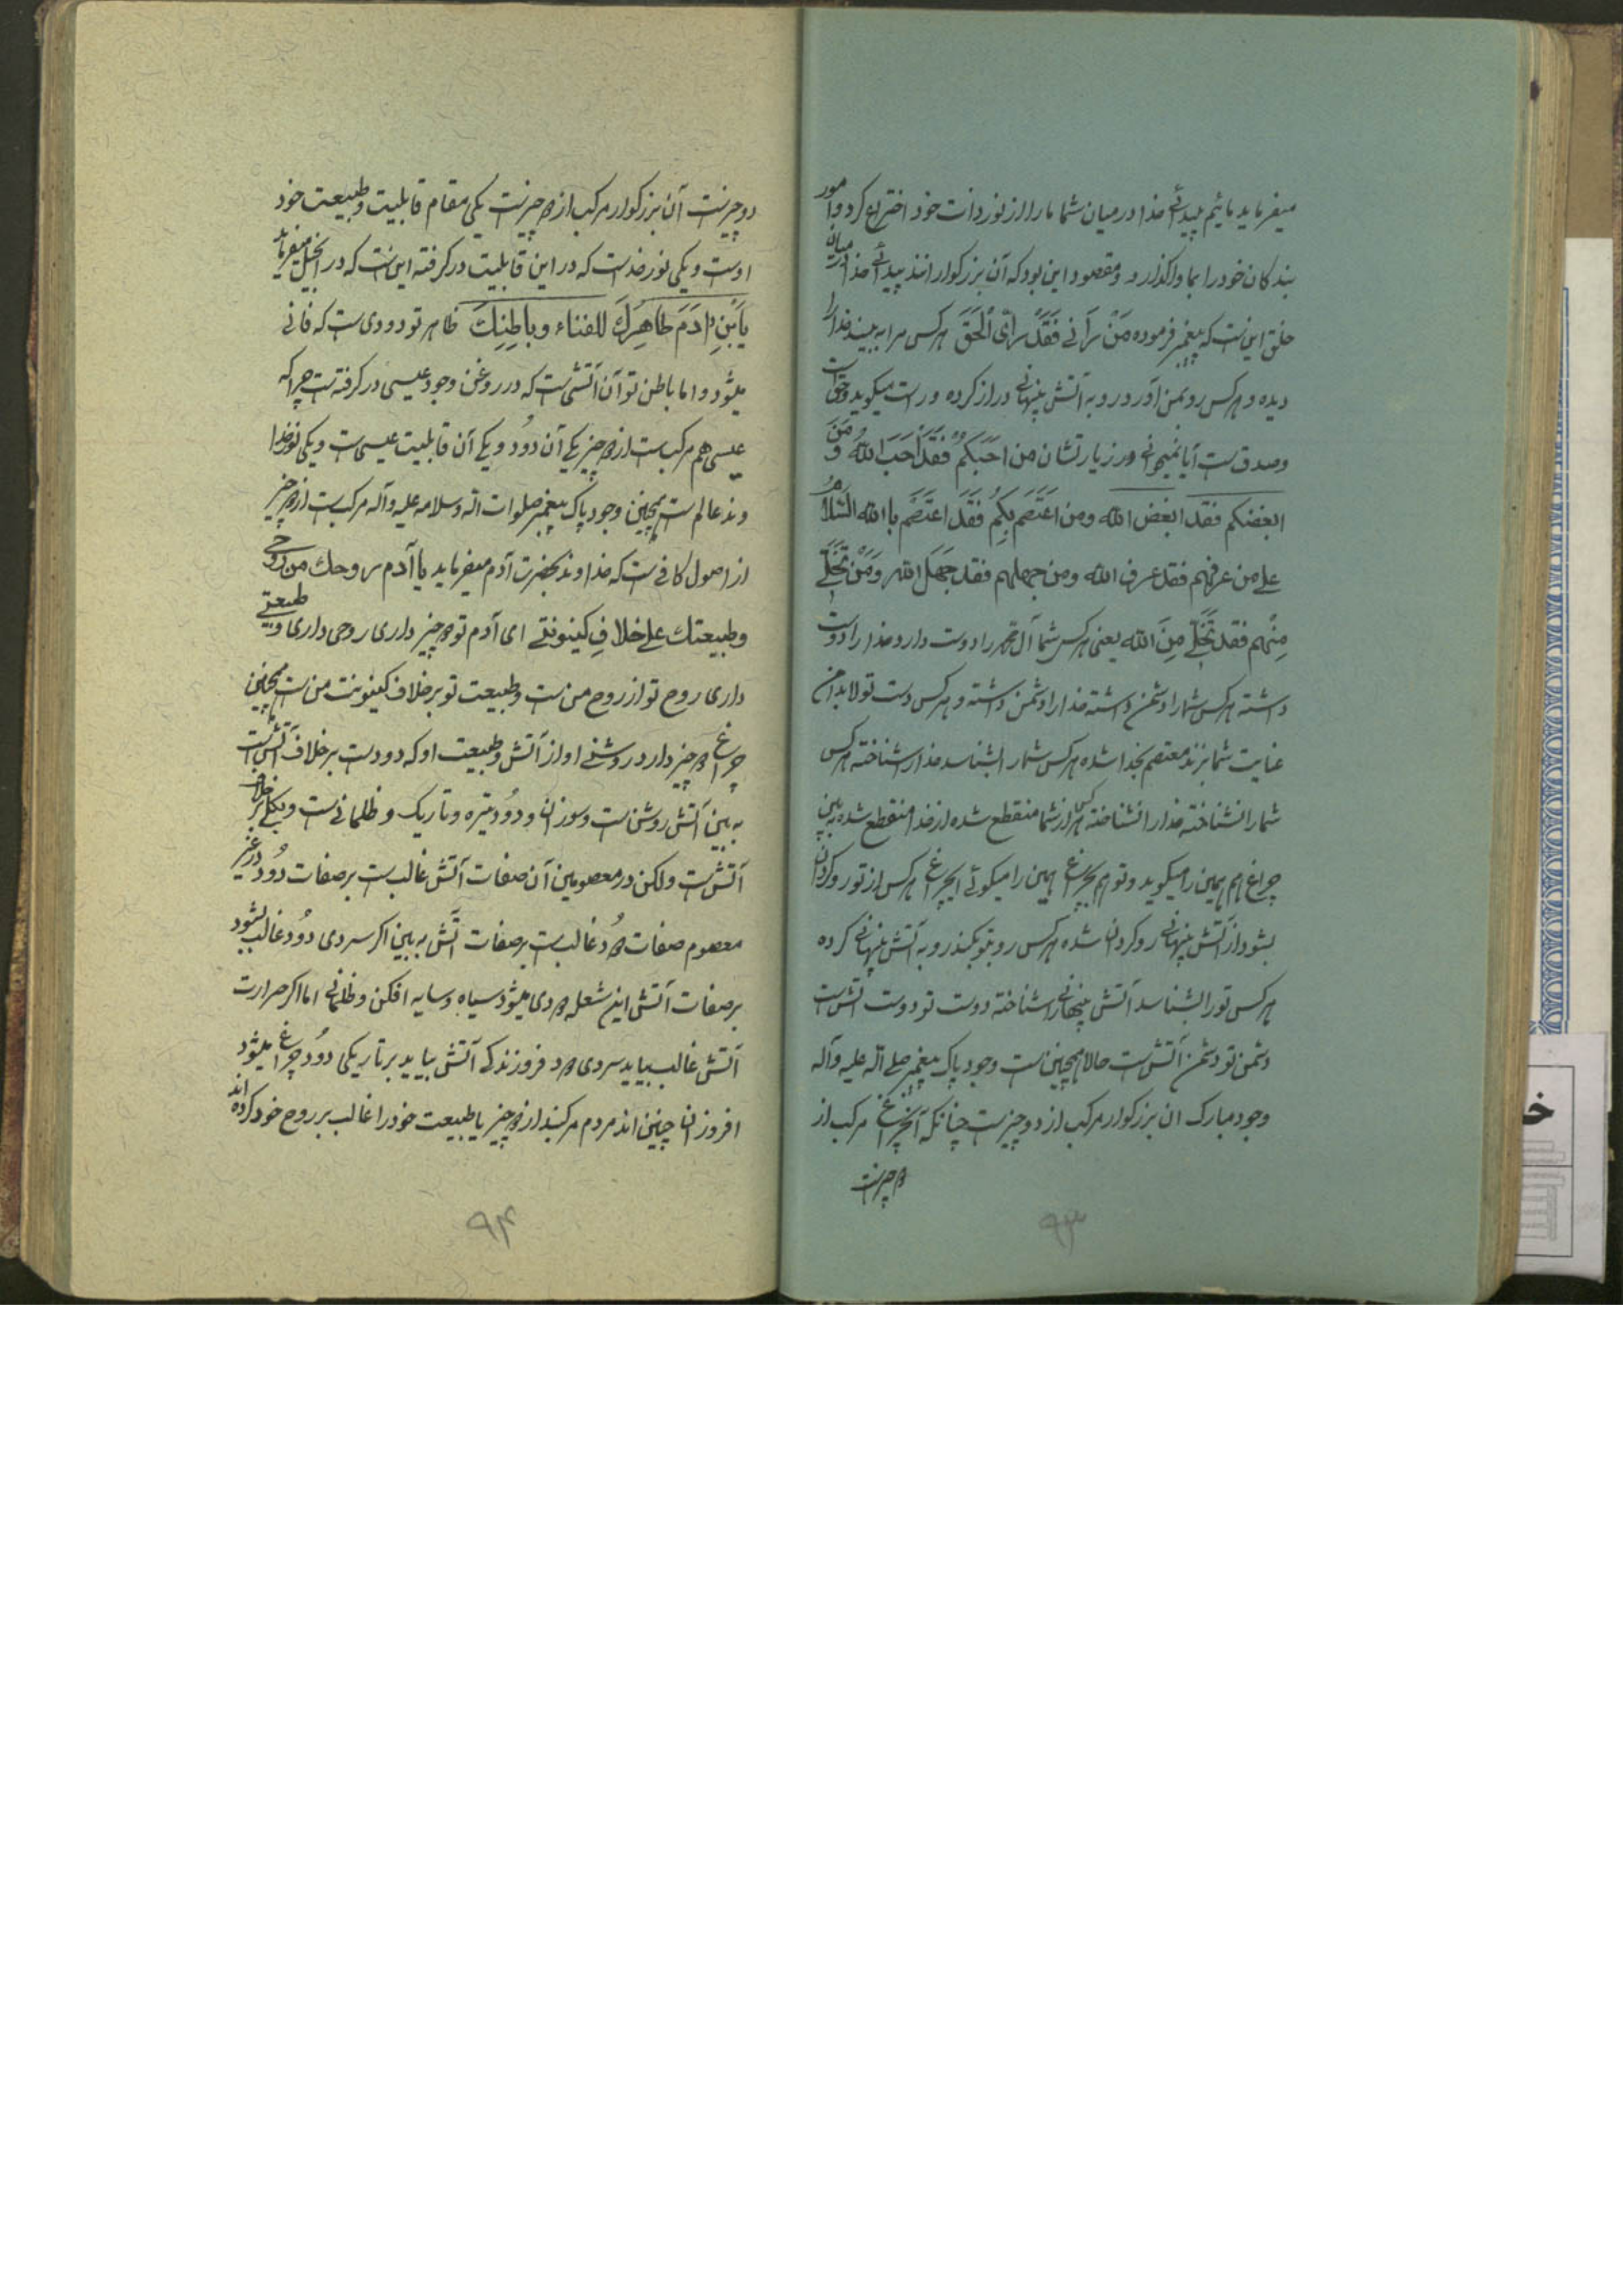 میفرماید مائیم پیدائی خدا در میان شما ما را از نور ذات خود اختراع کرد و امور
بندکان خود را بما واکذارد و مقصود این بود که آن بزرکوارانند پیدائی خدا در میان
خلق این است که پیغمبر فرموده مَنْ رَآنی فَقَدْ رَأیَ الْحَقَ هرکس مرا به بیند خدا را
دیده و هرکس رو بمن آورد رو به آتش پنهانی دراز کرده و راست میکوید و حق است
و صدق است آیا نمیخوانی در زیارتشان من اَحَبَکُمْ فَقَدْ اَحَبَ اللّهَ وَ مَنَ
ابغضکم فقد ابغض اللّه ومن اعتَصَم بِکُم فَقَد اعتَصَم با اللّه السَّلامُ
علی من عرفهم فقد عرف اللّه ومن جهلهم فقد جَهَلَ اللّه وَمَنْ تَخَلّی
مِنْهم فَقَد تَخَلّی مِنَ اللّه یعنی هرکس شما آل محمد را دوست دارد خدا را دوست
داشته هرکس شما را دشمن داشته خدا را دشمن داشته و هرکس دست تولا بدامن
عنایت شما بزند معتصم بخدا شده هرکس شما را بشناسد خدا را شناخته هرکس
شما را نشناخته خدا را نشناخته هرکس از شما منقطع شده از خدا منقطع شده به بین
چراغ هم همین را میکوید و تو هم بچراغ همین را میکوئی ایچراغ هرکس از تو روکردان
بشود از آتش پنهانی روکردان شده هرکس رو بتو بکند رو به آتش پنهانی کرده
هرکس تو را بشناسد آتش پنهانی را شناخته دوست تو دوست آتش است
دشمن تو دشمن آتش است حالا همچنین است وجود پاک پیغمبر صلی اللّه علیه وآله
وجود مبارک ان بزرکوار مرکب از دو چیز است چنانکه آنچراغ مرکب از
دو چیز است
۹۳
دو چیز است آن بزرکوار مرکب از دو چیز است یکی مقام قابلیت و طبیعت خود
اوست و یکی نور خداست که در این قابلیت درکرفته این است که در انجیل میفرماید
یَابَنِ ادَمَ ظاهِرُكَ للفناء و باطِنِكَ ظاهر تو دودی است که فانی
میشود و اما باطن تو آن آتشی است که در روغن وجود عیسی درکرفته است چرا که
عیسی هم مرکب است از دو چیز یکی آن دوُد و یکی آن قابلیت عیسی است و یکی نور خدا
وند عالم است همچنین وجود پاک پیغمبر صلوات اللّه وسلامه علیه وآله مرکب است از دو چیز
از اصول کافی است که خداوند بحضرت آدم میفرماید یا آدم روحك من رُوحی
وطبیعتك علی خلافِ کینونتی ای آدم تو دو چیز داری روحی داری و طبیعتی
داری روح تو از روح من است و طبیعت تو برخلاف کینونت من است همچنین
چراغ دو چیز دارد روشنی او از آتش و طبیعت او که دود است برخلاف آتش است
به بین آتش روشن است و سوزان و دوُد تیره و تاریک و ظلمانی است و بکلی برخلاف
آتش است ولکن در معصومین آن صفات آتش غالب است بر صفات دوُد در غیر
معصوم صفات دوُد غالب است بر صفات آتش به بین اکر سردی دوُد غالب بشود
بر صفات آتش این شعله دودی میشود سیاه و سایه افکن و ظلمانی اما اکر حرارت
آتش غالب بیاید سردی دود فروزندکی آتش بیاید بر تاریکی دوُد چراغ میشود
افروزان چنین اند مردم مرکبند از دو چیز یا طبیعت خود را غالب بر روح خود کرده اند
۹۴